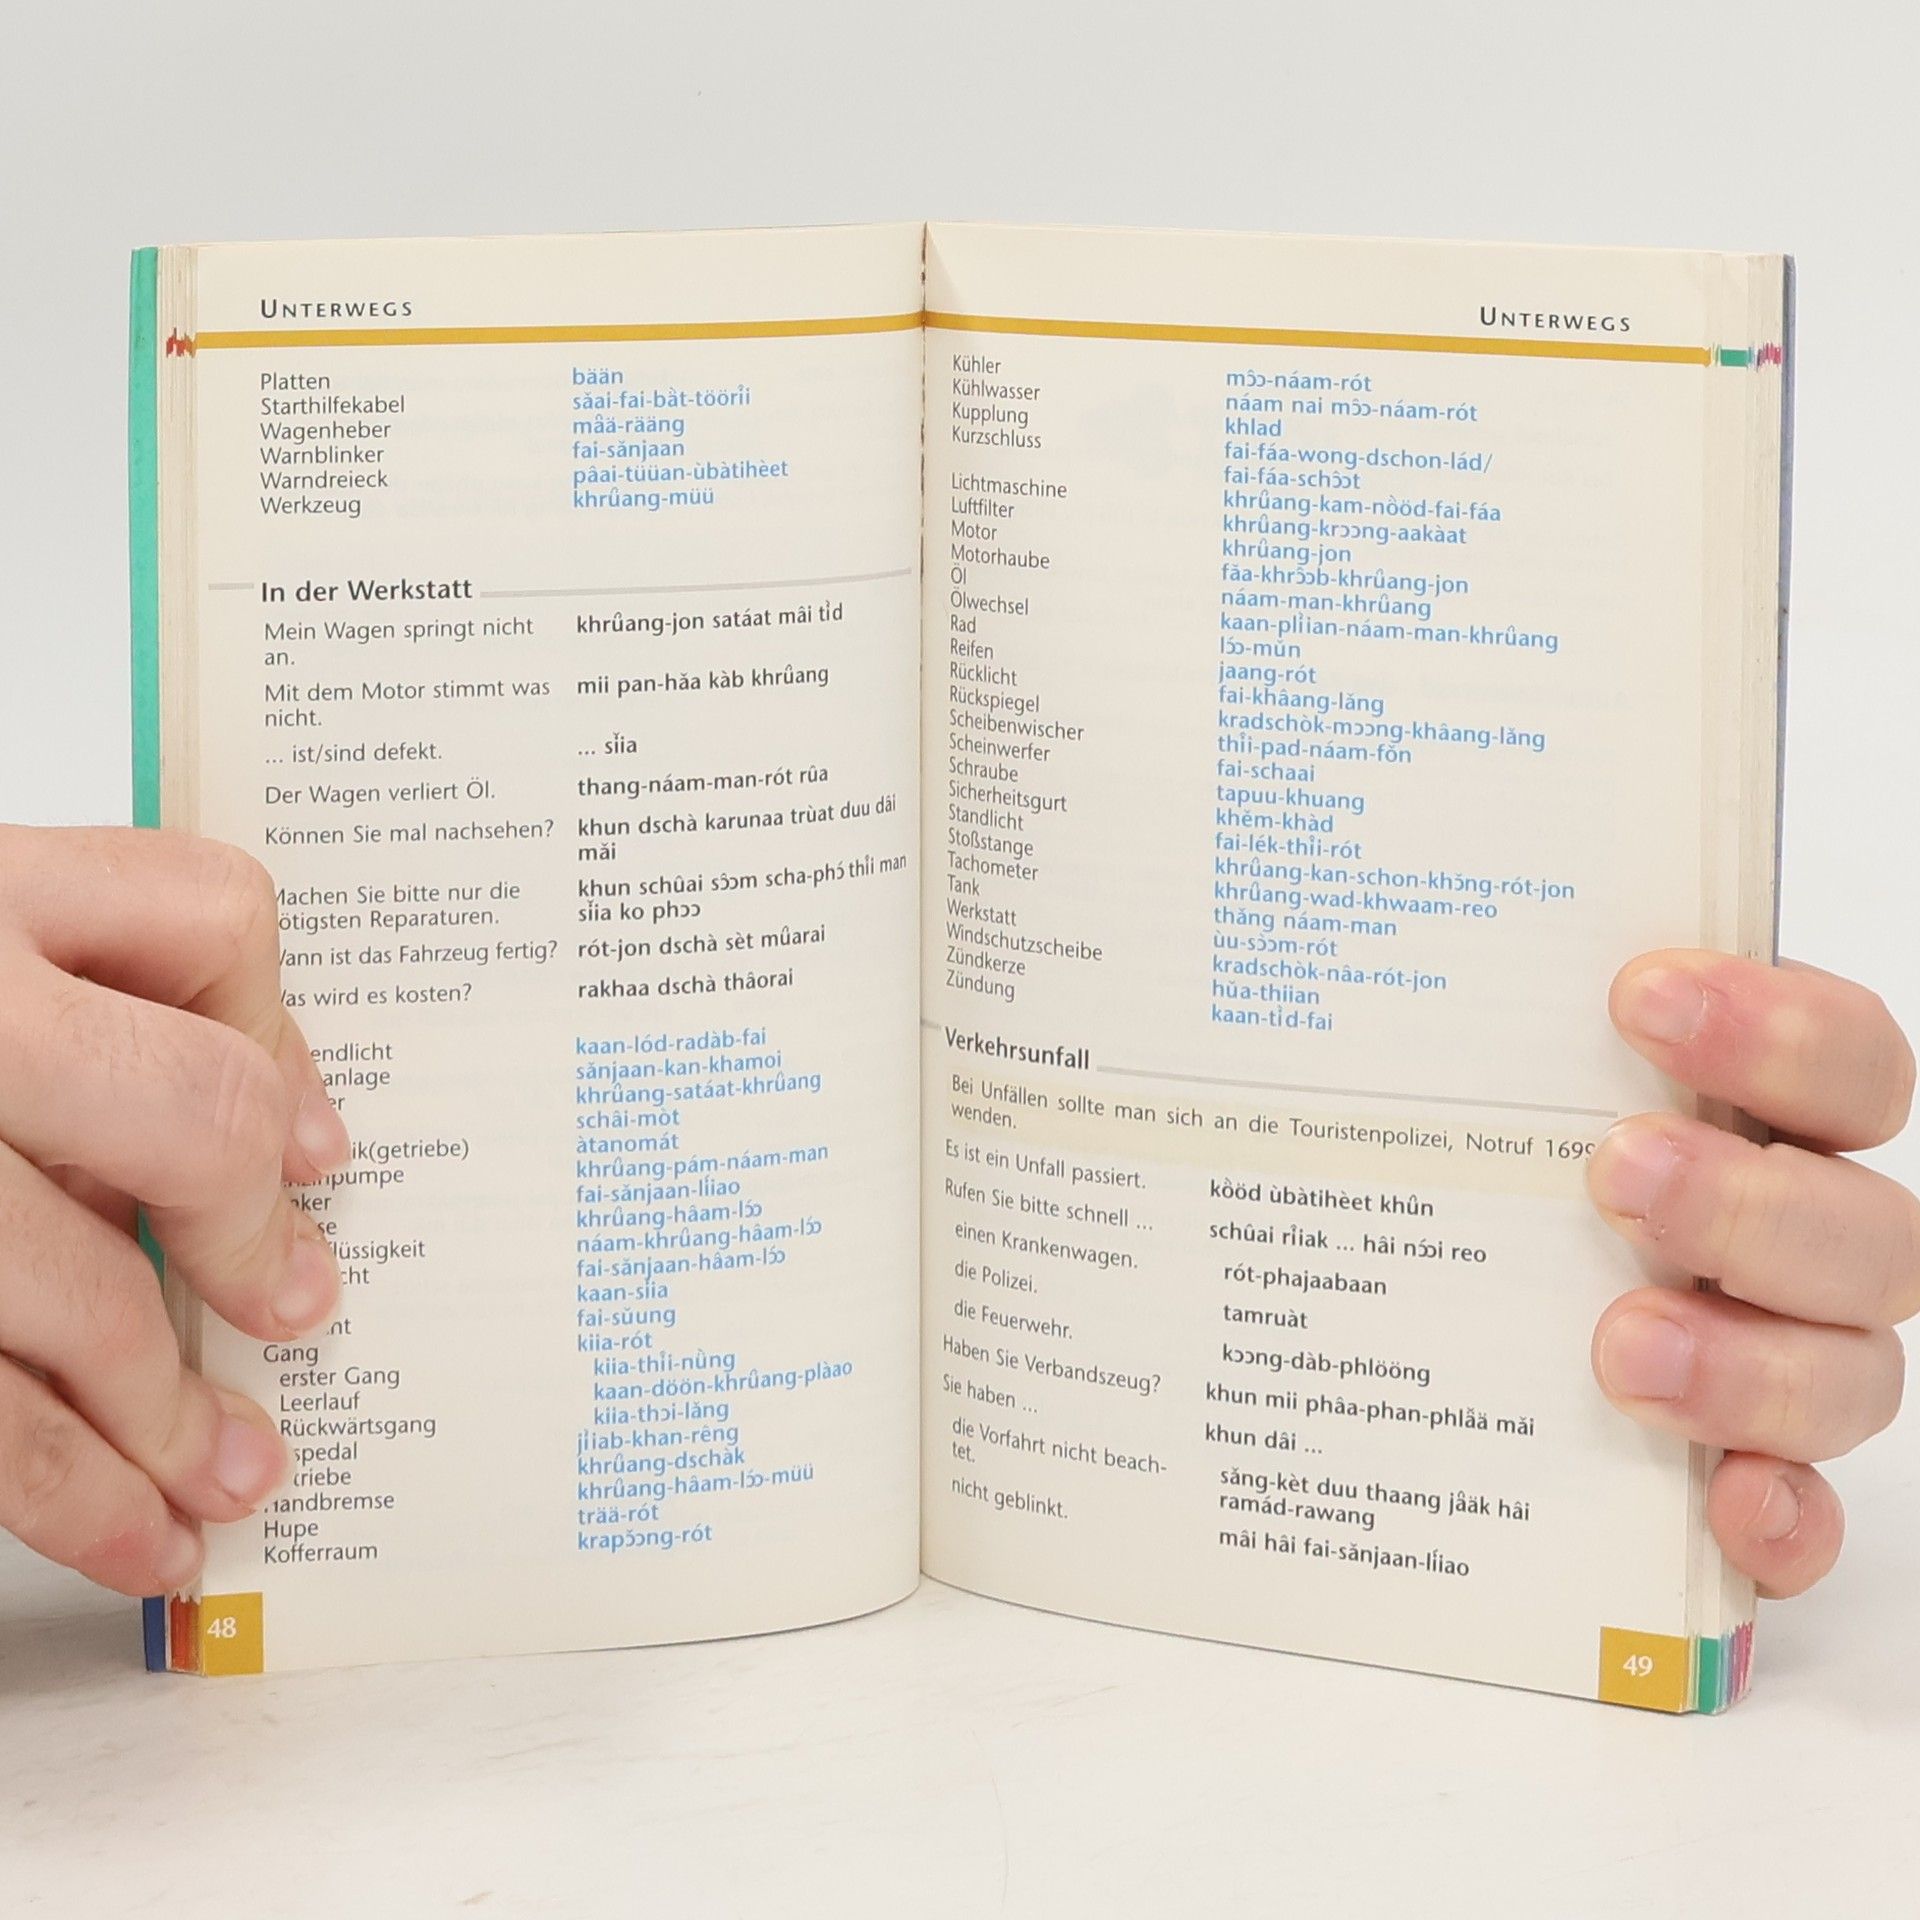 UNTERWEGS
Platten bään
Starthilfekabel sǎai-fai-bàt-töörîi
Wagenheber mâä-rääng
Warnblinker fai-sǎnjaan
Warndreieck pâai-tüüan-ùbàtihèet
Werkzeug khrûang-müü
In der Werkstatt
Mein Wagen springt nicht khrûang-jon satáat mâi tìd
an.
Mit dem Motor stimmt was mii pan-hǎa kàb khrûang
nicht.
... ist/sind defekt. ... sǐia
Der Wagen verliert Öl. thang-náam-man-rót rûa
Können Sie mal nachsehen? khun dschà karunaa trùat duu dâi
mǎi
Machen Sie bitte nur die khun schûai sɔ̂ɔm scha-phɔ́ thîi man
ötigsten Reparaturen. sǐia ko phɔɔ
Wann ist das Fahrzeug fertig? rót-jon dschà sèt mûarai
Was wird es kosten? rakhaa dschà thâorai
endlicht kaan-lód-radàb-fai
anlage sǎnjaan-kan-khamoi
er khrûang-satáat-khrûang
schâi-mòt
ik(getriebe) àtanomát
pumpe khrûang-pám-náam-man
ker fai-sǎnjaan-líiao
se khrûang-hâam-lɔ́ɔ
flüssigkeit náam-khrûang-hâam-lɔ́ɔ
cht fai-sǎnjaan-hâam-lɔ́ɔ
kaan-sǐia
nt fai-sǔung
Gang kiia-rót
erster Gang kiia-thîi-nǜng
Leerlauf kaan-döön-khrûang-plàao
Rückwärtsgang kiia-thɔi-lǎng
spedal jìiab-khan-rêng
triebe khrûang-dschàk
Handbremse khrûang-hâam-lɔ́ɔ-müü
Hupe trää-rót
Kofferraum krapɔ̌ɔng-rót
48
UNTERWEGS
Kühler mɔ̂ɔ-náam-rót
Kühlwasser náam nai mɔ̂ɔ-náam-rót
Kupplung khlad
Kurzschluss fai-fáa-wong-dschon-lád/
fai-fáa-schɔ̂ɔt
Lichtmaschine khrûang-kam-nö̀öd-fai-fáa
Luftfilter khrûang-krɔɔng-aakàat
Motor khrûang-jon
Motorhaube fǎa-khrɔ̂ɔb-khrûang-jon
Öl náam-man-khrûang
Ölwechsel kaan-plìian-náam-man-khrûang
Rad lɔ́ɔ-mǔn
Reifen jaang-rót
Rücklicht fai-khâang-lǎng
Rückspiegel kradschòk-mɔɔng-khâang-lǎng
Scheibenwischer thîi-pad-náam-fǒn
Scheinwerfer fai-schaai
Schraube tapuu-khuang
Sicherheitsgurt khěm-khàd
Standlicht fai-lék-thîi-rót
Stoßstange khrûang-kan-schon-khɔ̌ng-rót-jon
Tachometer khrûang-wad-khwaam-reo
Tank thǎng náam-man
Werkstatt ùu-sɔ̀ɔm-rót
Windschutzscheibe kradschòk-nâa-rót-jon
Zündkerze hǔa-thiian
Zündung kaan-tìd-fai
Verkehrsunfall
Bei Unfällen sollte man sich an die Touristenpolizei, Notruf 1699
wenden.
Es ist ein Unfall passiert. kö̀öd ùbàtihèet khûn
Rufen Sie bitte schnell ... schûai rîiak ... hâi nɔ́ɔi reo
einen Krankenwagen. rót-phajaabaan
die Polizei. tamruàt
die Feuerwehr. kɔɔng-dàb-phlööng
Haben Sie Verbandszeug? khun mii phâa-phan-phlä̌ä mǎi
Sie haben ... khun dâi ...
die Vorfahrt nicht beach- sǎng-kèt duu thaang jâäk hâi
tet. ramád-rawang
nicht geblinkt. mâi hâi fai-sǎnjaan-líiao
49